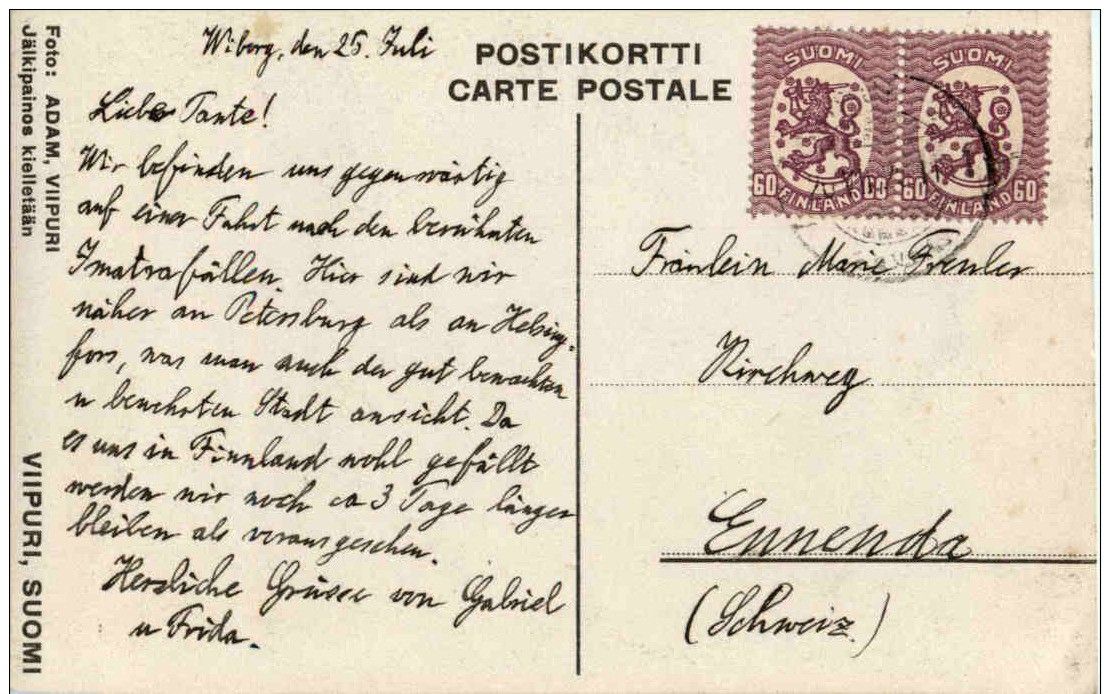 Foto: ADAM, VIIPURI
Jälkipainos kielletään
VIIPURI, SUOMI
Wiborg, den 25. Juli
Liebe Tante!
Wir befinden uns gegenwärtig
auf einer Fahrt nach den berühmten
Imatrafällen. Hier sind wir
näher an Petersburg als an Helsing-
fors, was man auch der gut bewachten
u bewehrten Stadt ansieht. Da
es uns in Finnland wohl gefällt
werden wir noch ca 3 Tage länger
bleiben als vorausgesehen.
Herzliche Grüsse von Gabriel
u Frida.
POSTIKORTTI
CARTE POSTALE
SUOMI SUOMI
60 FINLAND 60 60 FINLAND 60
Fräulein Marie
Kirchweg
Ennenda
(Schweiz)